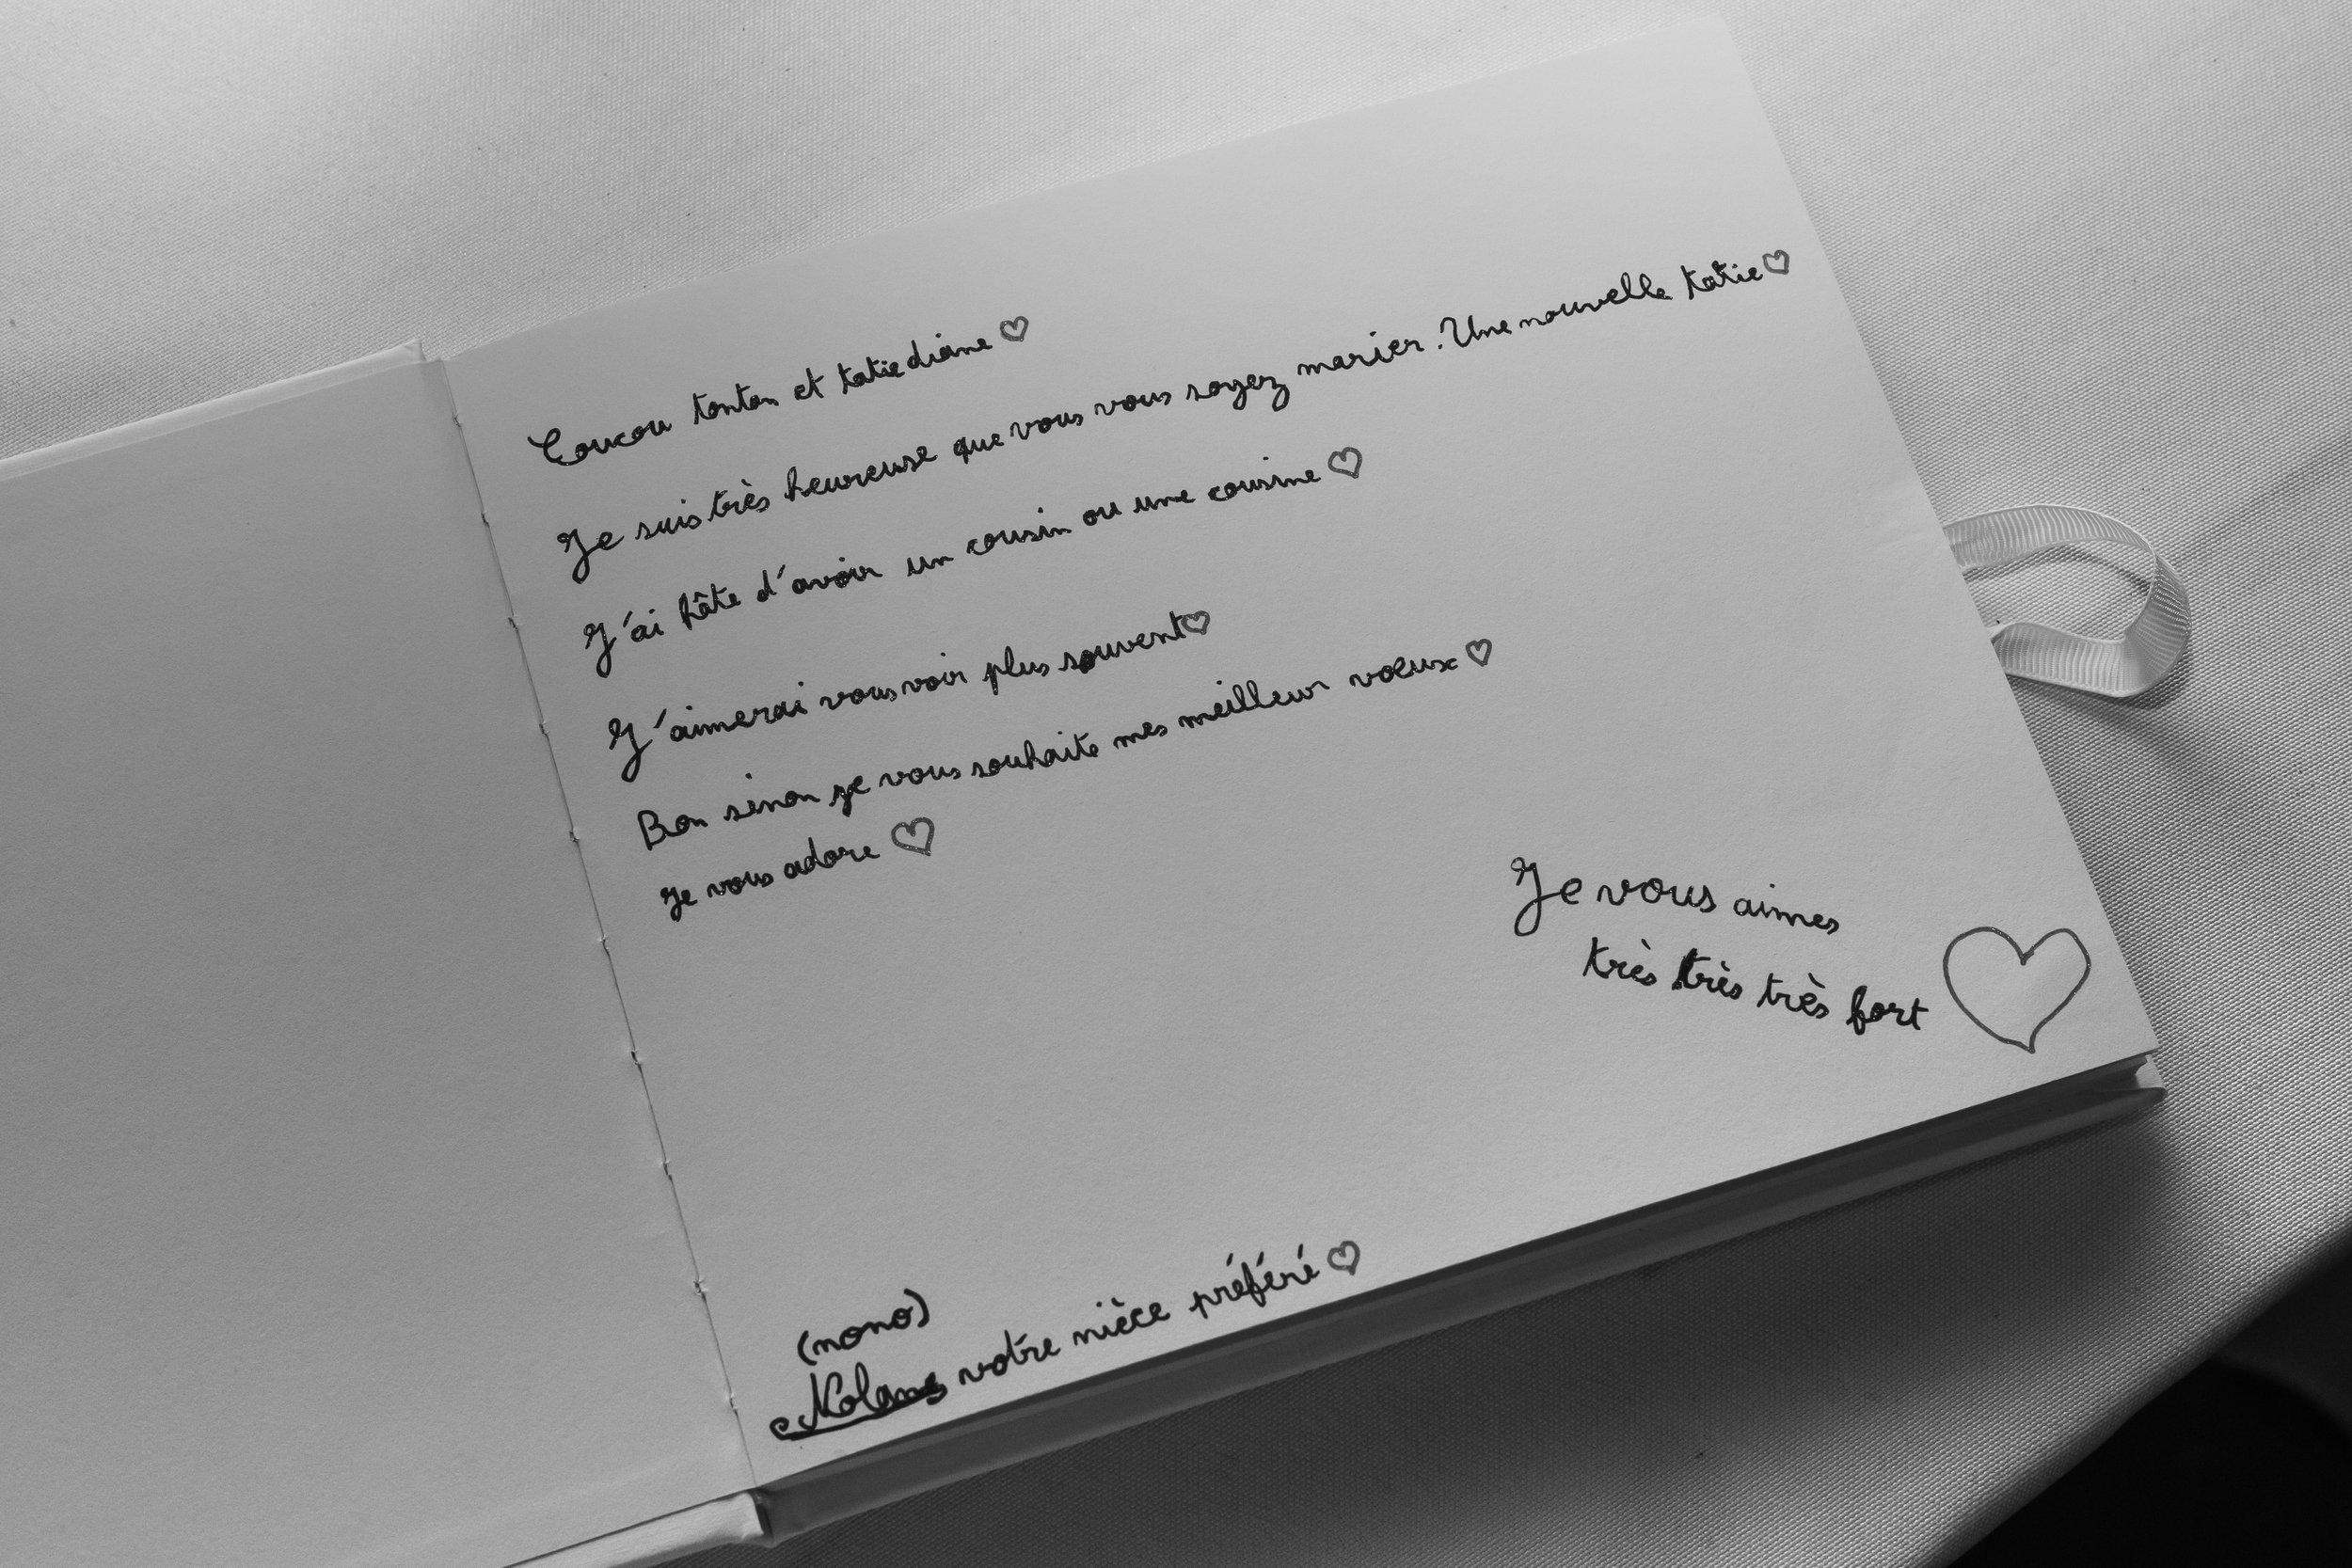 Coucou tonton et tatie diane ♡
Je suis très heureuse que vous vous soyez marier. Une nouvelle tatie ♡
J'ai hâte d'avoir un cousin ou une cousine ♡
J'aimerai vous voir plus souvent ♡
Bon sinon je vous souhaite mes meilleur vœux ♡
je vous adore ♡
Je vous aimes
très très très fort ♡
(nono)
votre nièce préféré ♡